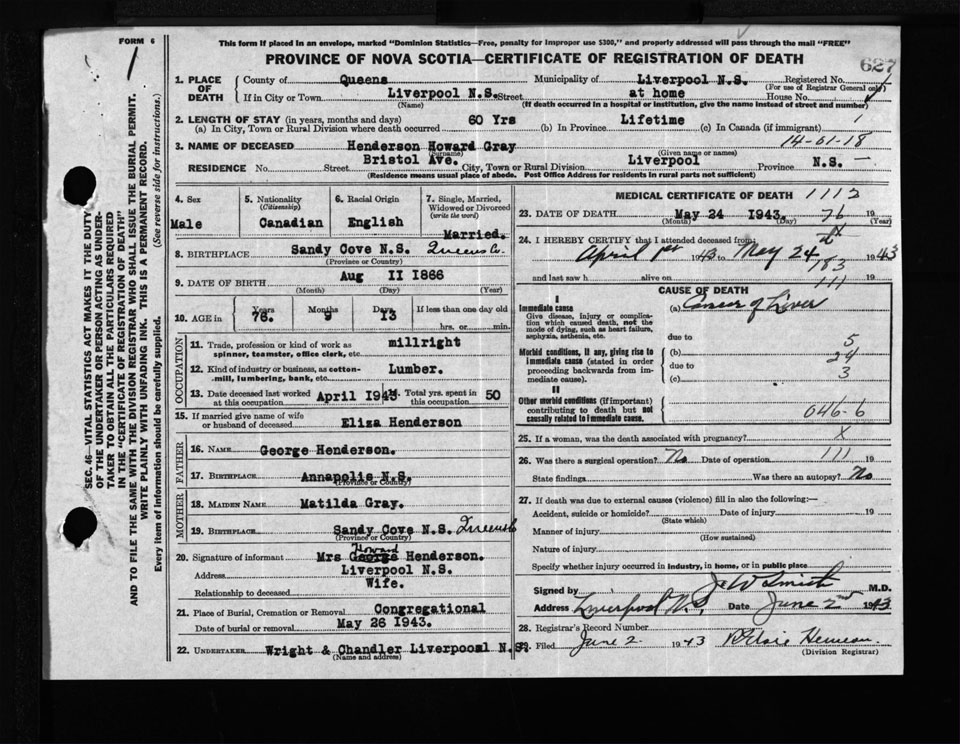 FORM 6
1
This form if placed in an envelope, marked "Dominion Statistics—Free, penalty for improper use $300," and properly addressed will pass through the mail "FREE"
PROVINCE OF NOVA SCOTIA—CERTIFICATE OF REGISTRATION OF DEATH
627
SEC. 46—VITAL STATISTICS ACT MAKES IT THE DUTY
OF THE UNDERTAKER OR PERSON ACTING AS UNDER-
TAKER TO OBTAIN ALL THE PARTICULARS REQUIRED
IN THE "CERTIFICATE OF REGISTRATION OF DEATH"
AND TO FILE THE SAME WITH THE DIVISION REGISTRAR WHO SHALL ISSUE THE BURIAL PERMIT.
WRITE PLAINLY WITH UNFADING INK. THIS IS A PERMANENT RECORD.
Every item of information should be carefully supplied. (See reverse side for instructions.)
1. PLACE OF DEATH
County of Queens Municipality of Liverpool N.S. Registered No.
(For use of Registrar General only)
If in City or Town Liverpool N.S. Street at home House No.
(Name) (If death occurred in a hospital or institution, give the name instead of street and number)
2. LENGTH OF STAY (in years, months and days)
(a) In City, Town or Rural Division where death occurred 60 Yrs (b) In Province Lifetime (c) In Canada (if immigrant) 1
14-01-18
3. NAME OF DECEASED Henderson Howard Gray
(Surname) (Given name or names)
RESIDENCE No. Bristol Ave. Street City, Town or Rural Division Liverpool Province N.S. —
(Residence means usual place of abode. Post Office Address for residents in rural parts not sufficient)
4. Sex
Male
5. Nationality
(Citizenship)
Canadian
6. Racial Origin
English
7. Single, Married,
Widowed or Divorced
(write the word)
Married.
8. BIRTHPLACE Sandy Cove N.S. Queens Co.
(Province or Country)
9. DATE OF BIRTH Aug II 1866
(Month) (Day) (Year)
10. AGE in
Years 76.
Months 9
Days 13
If less than one day old
hrs. or min.
OCCUPATION
11. Trade, profession or kind of work as
spinner, teamster, office clerk, etc. millright
12. Kind of industry or business, as cotton-
mill, lumbering, bank, etc. Lumber.
13. Date deceased last worked
at this occupation April 194
14. Total yrs. spent in
this occupation 50
15. If married give name of wife
or husband of deceased Eliza Henderson
FATHER
16. NAME George Henderson.
17. BIRTHPLACE Annapolis N.S.
(Province or Country)
MOTHER
18. MAIDEN NAME Matilda Gray.
19. BIRTHPLACE Sandy Cove N.S. Queens Co
(Province or Country)
Howard
20. Signature of informant Mrs George Henderson.
Address Liverpool N.S.
Relationship to deceased Wife.
21. Place of Burial, Cremation or Removal Congregational
Date of burial or removal May 26 1943.
22. UNDERTAKER Wright & Chandler Liverpool N.S.
(Name and address)
MEDICAL CERTIFICATE OF DEATH 1112
23. DATE OF DEATH May 24 1943. 76 19
(Month) (Day) (Year)
24. I HEREBY CERTIFY that I attended deceased from:
April 1st 1943 to May 24 1943
183
and last saw h alive on 111 19
CAUSE OF DEATH
I
Immediate cause
Give disease, injury or compli-
cation which caused death, not the
mode of dying, such as heart failure,
asphyxia, asthenia, etc.
(a) Cancer of Liver
due to 5
Morbid conditions, if any, giving rise to
immediate cause (stated in order
proceeding backwards from im-
mediate cause).
(b) 24
due to 3
(c)
II
Other morbid conditions (if important)
contributing to death but not
causally related to immediate cause.
046-6
25. If a woman, was the death associated with pregnancy? X
26. Was there a surgical operation? No Date of operation 111 19
State findings Was there an autopsy? No
27. If death was due to external causes (violence) fill in also the following:—
Accident, suicide or homicide? Date of injury 19
(State which)
Manner of injury
(How sustained)
Nature of injury
Specify whether injury occurred in industry, in home, or in public place
Signed by J W Smith M.D.
Address Liverpool N.S. Date June 2nd 1943
28. Registrar's Record Number
29. Filed June 2 1943
(Division Registrar)